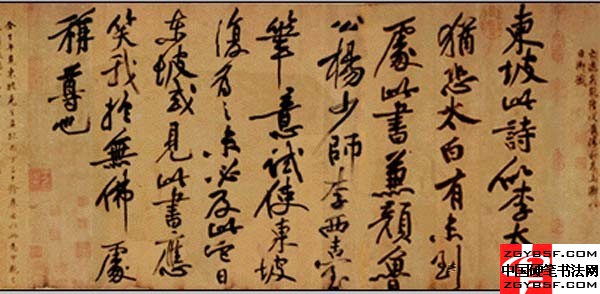 東坡此詩似李太
猶恐太白有未到
處此書兼顏魯
公楊少師李西臺
筆意試使東坡
復為之未必及此它日
東坡或見此書應
笑我於無佛處
稱尊也
ZGYBSF.COM
中国硬笔书法网
ZGYBSF.COM